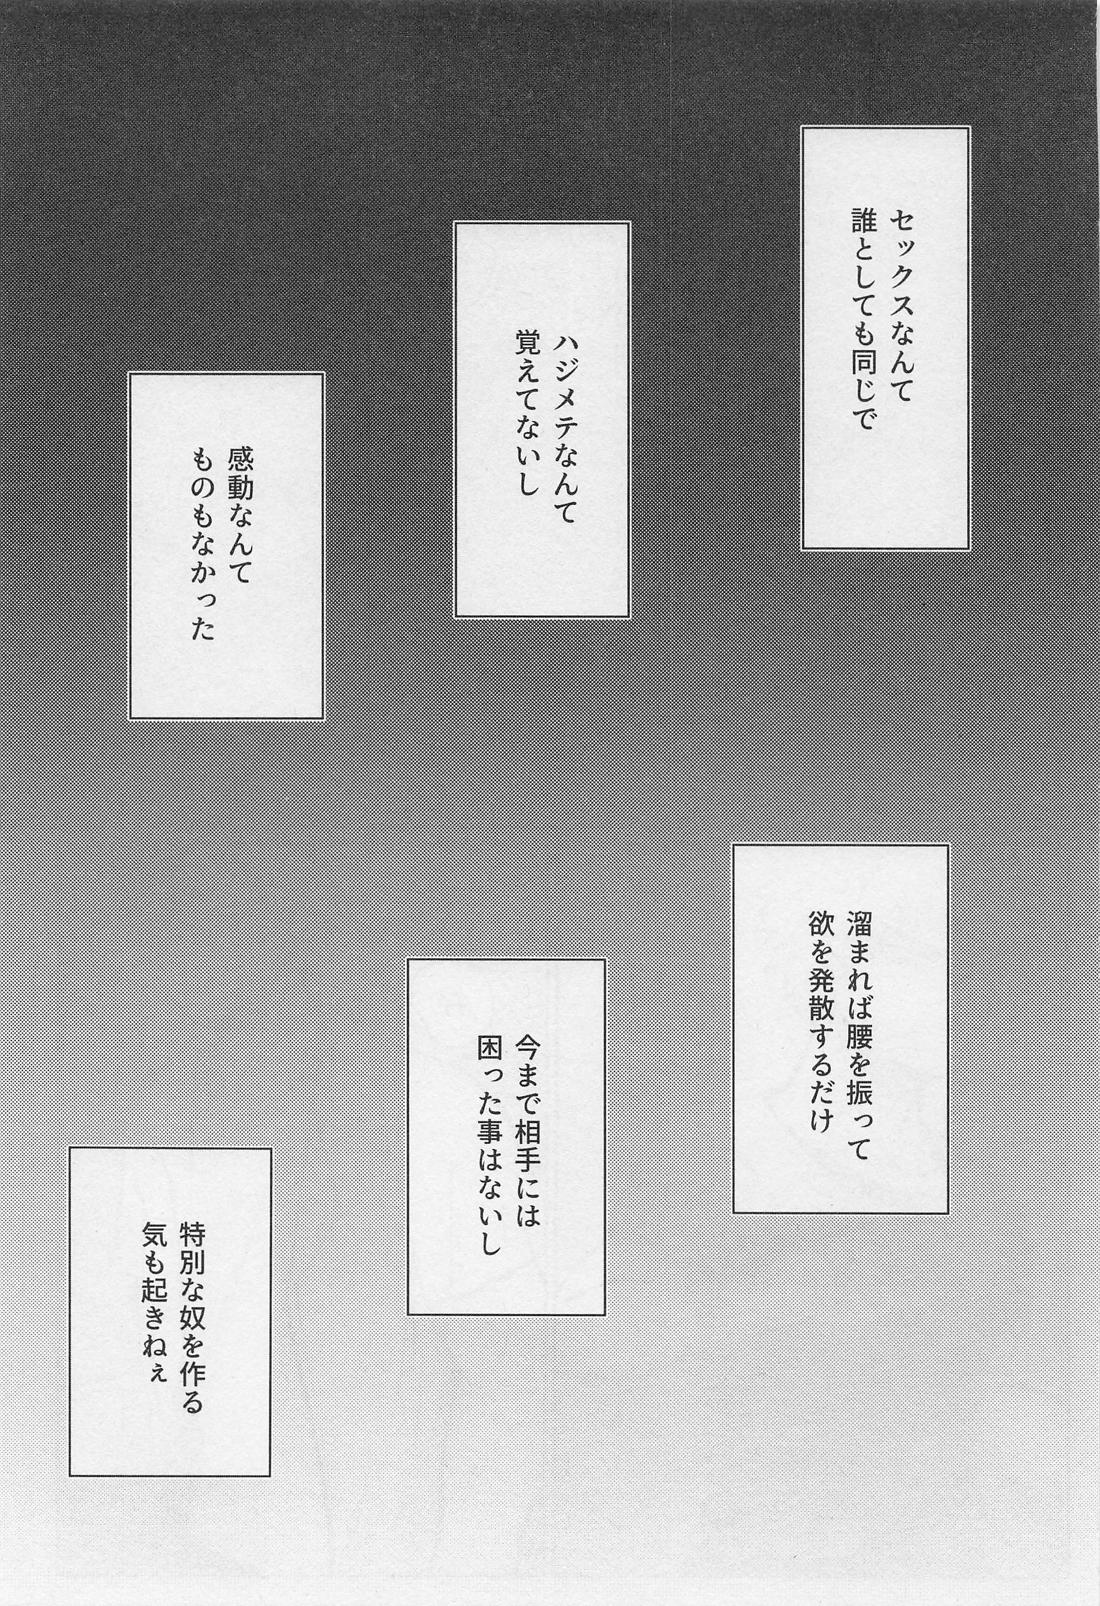 セックスなんて
誰としても同じで
ハジメテなんて
覚えてないし
感動なんて
ものもなかった
溜まれば腰を振って
欲を発散するだけ
今まで相手には
困った事はないし
特別な奴を作る
気も起きねぇ